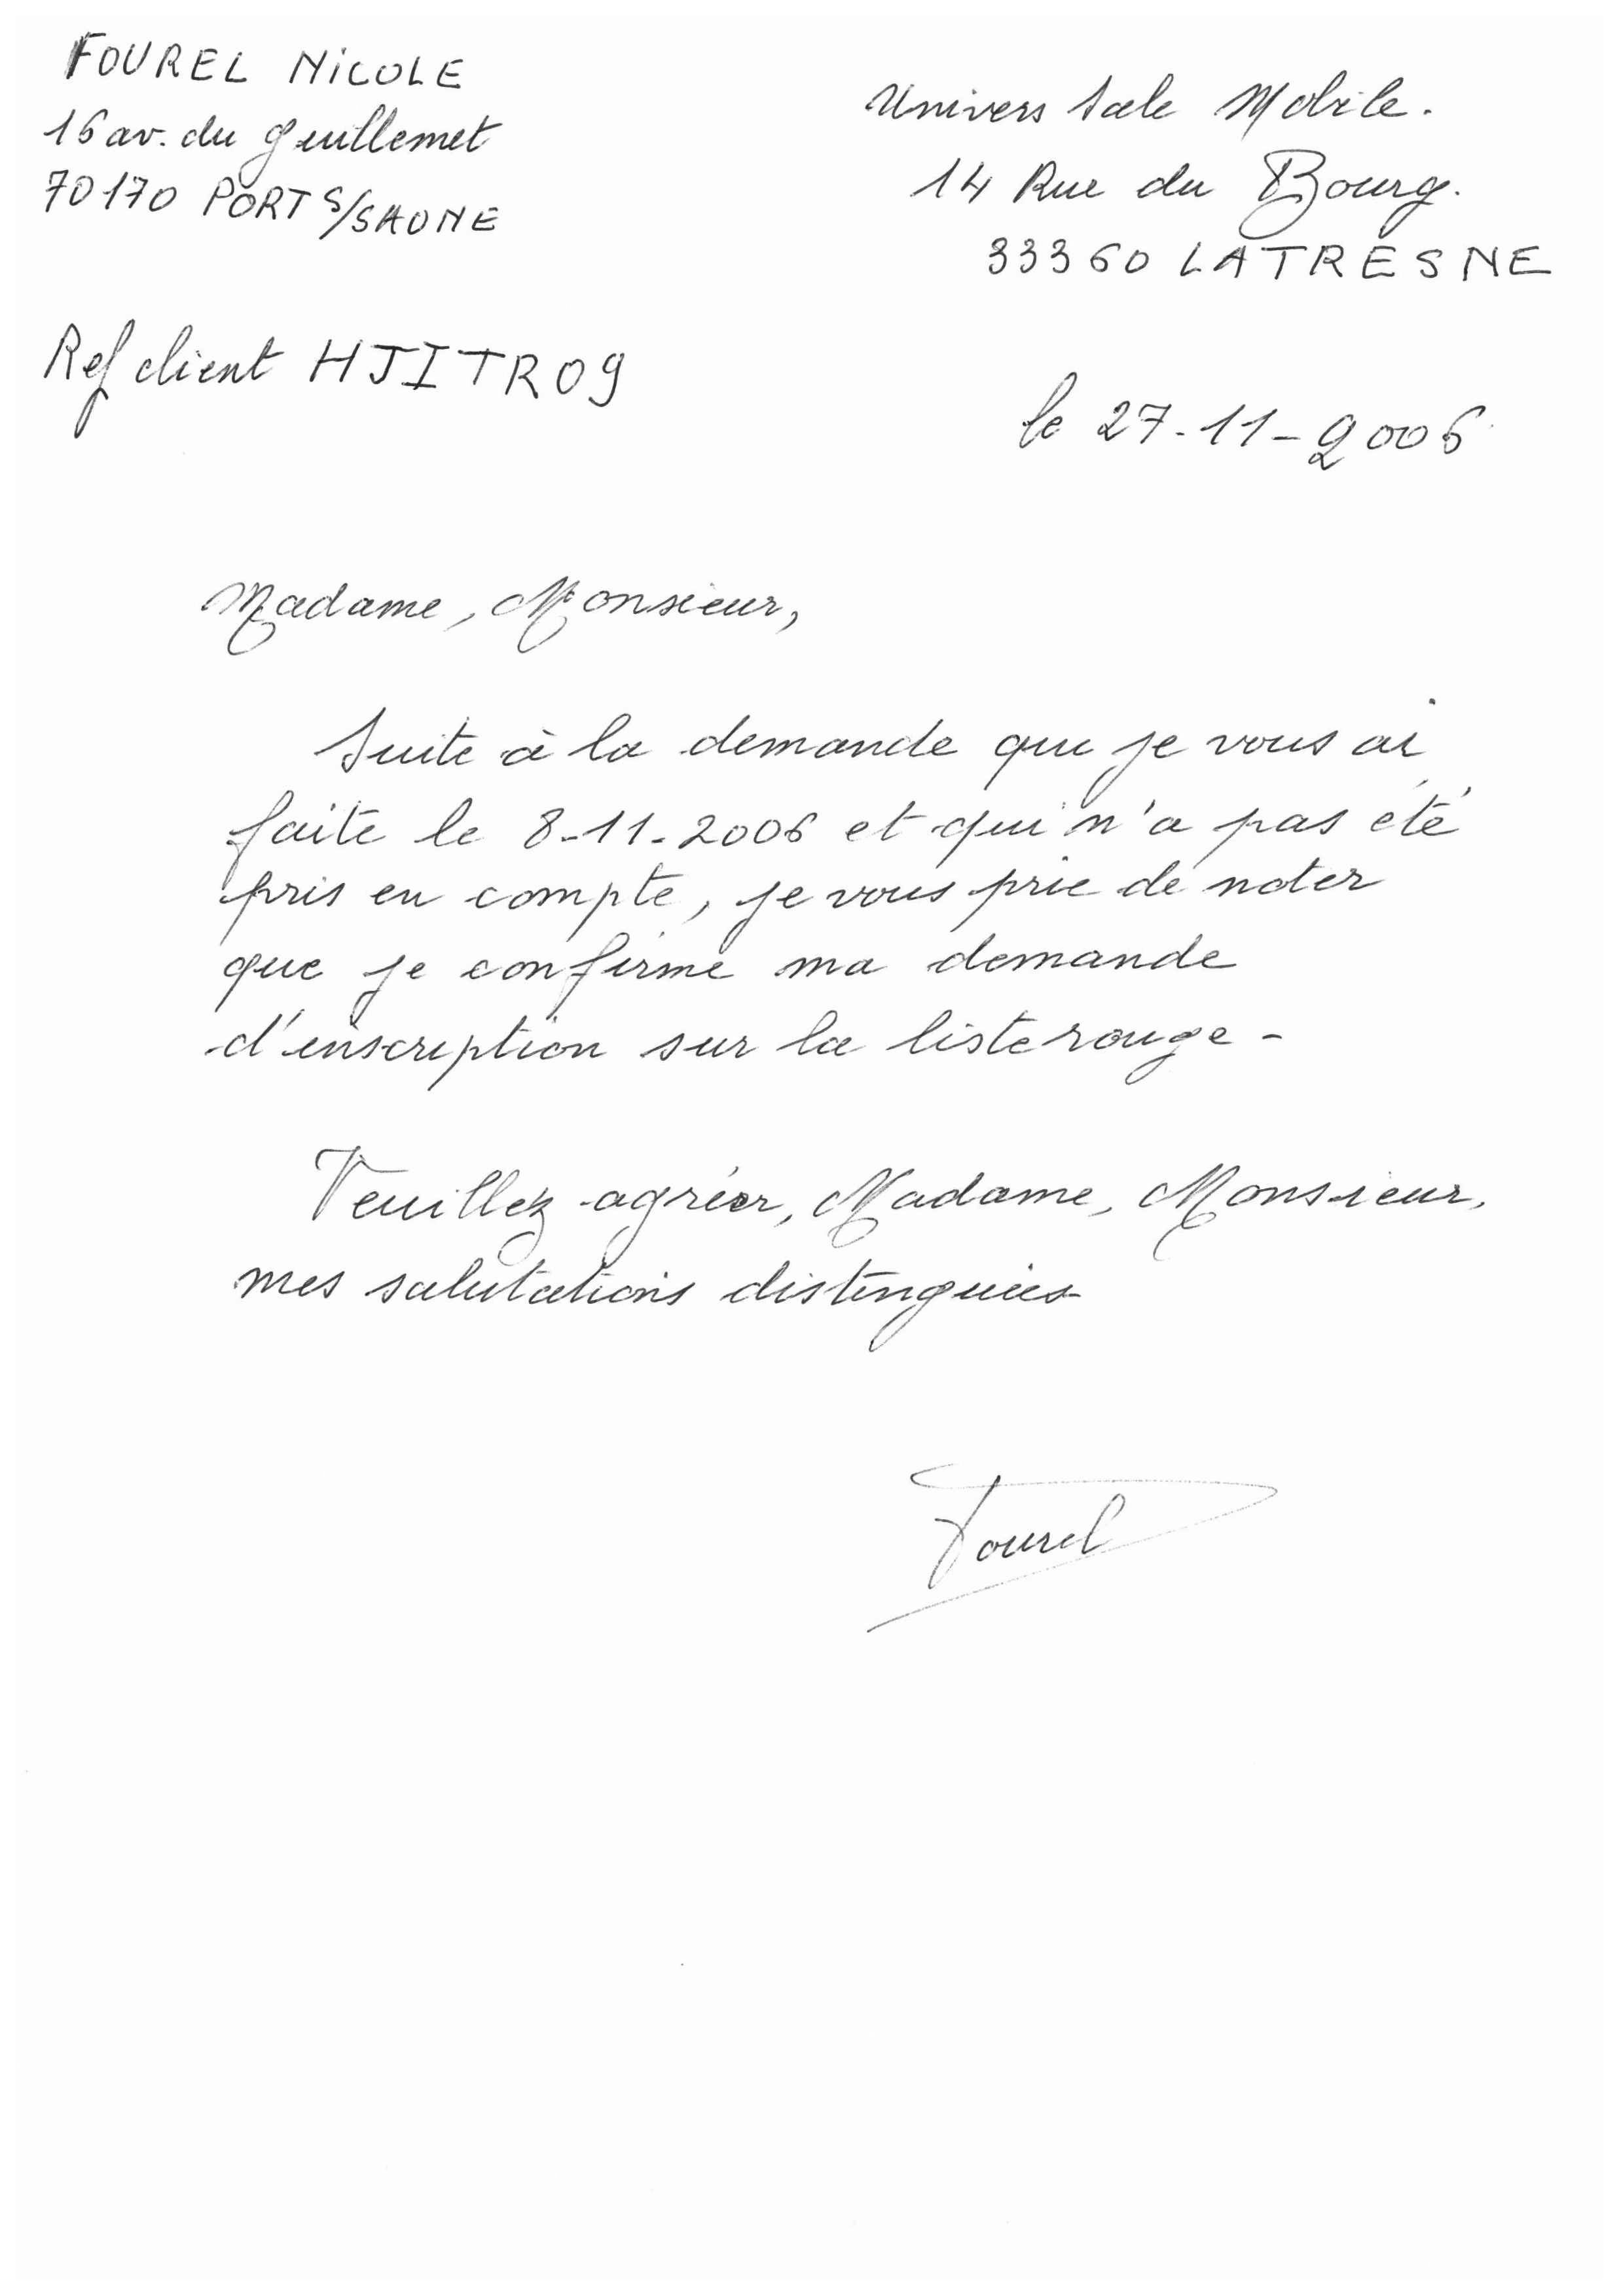 FOUREL NICOLE
16 av. du guillemet
70170 PORT S/SAONE
Univers Sale Mobile.
14 Rue du Bourg.
33360 LATRESNE
Ref client HJITR09
le 27-11-2006
Madame, Monsieur,
Suite à la demande que je vous ai
faite le 8-11-2006 et qui n'a pas été
pris en compte, je vous prie de noter
que je confirme ma demande
d'inscription sur la liste rouge -
Veuillez agréer, Madame, Monsieur,
mes salutations distinguées
Fourel